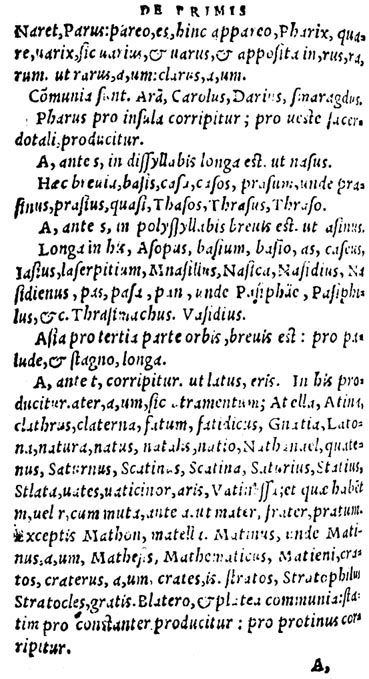 DE PRIMIS
Naret, Parus: pareo, es, hinc appareo, Pharix, qua⸗
re, uarix, sic uarius, & uarus, & apposita in, rus, ra,
rum. ut rarus, a, um: clarus, a, um.
Cōmunia sunt. Arā, Carolus, Darius, smaragdus.
Pharus pro insula corripitur; pro ueste sacer⸗
dotali, producitur.
A, ante s, in dissyllabis longa est. ut nasus.
Hæc breuia, basis, casa, casos, prasum, unde pra⸗
sinus, prasius, quasi, Thasos, Thrasus, Thraso.
A, ante s, in polysyllabis breuis est. ut asinus.
Longa in his, Asopus, basium, basio, as, caseus,
Iasius, laserpitium, Mnasillus, Nasica, Nasidius, Na
sidienus, pas, pasa, pan, unde Pasiphäe, Pasiphi⸗
lus, &c. Thrasimachus. Vasidius.
Asia pro tertia parte orbis, breuis est: pro pa⸗
lude, & stagno, longa.
A, ante t, corripitur. ut latus, eris. In his pro⸗
ducitur. ater, a, um, sic atramentum; Atella, Atina,
clathrus, claterna, fatum, fatidicus, Gnatia, Lato⸗
na, natura, natus, natalis, natio, Nathanael, quate⸗
nus, Saturnus, Scatinus, Scatina, Saturius, Statius,
Stlata, uates, uaticinor, aris, et quæ habēt
m, uel r, cum muta, ante a. ut mater, frater, pratum.
Exceptis Mathon, Matinus, unde Mati⸗
nus, a, um, Mathesis, Mathematicus, Matieni, cra⸗
tos, craterus, a, um. crates, is. stratos, Stratophilus
Stratocles, gratis. Blatero, & platea communia: sta⸗
tim pro constanter producitur: pro protinus cor⸗
ripitur.
A,